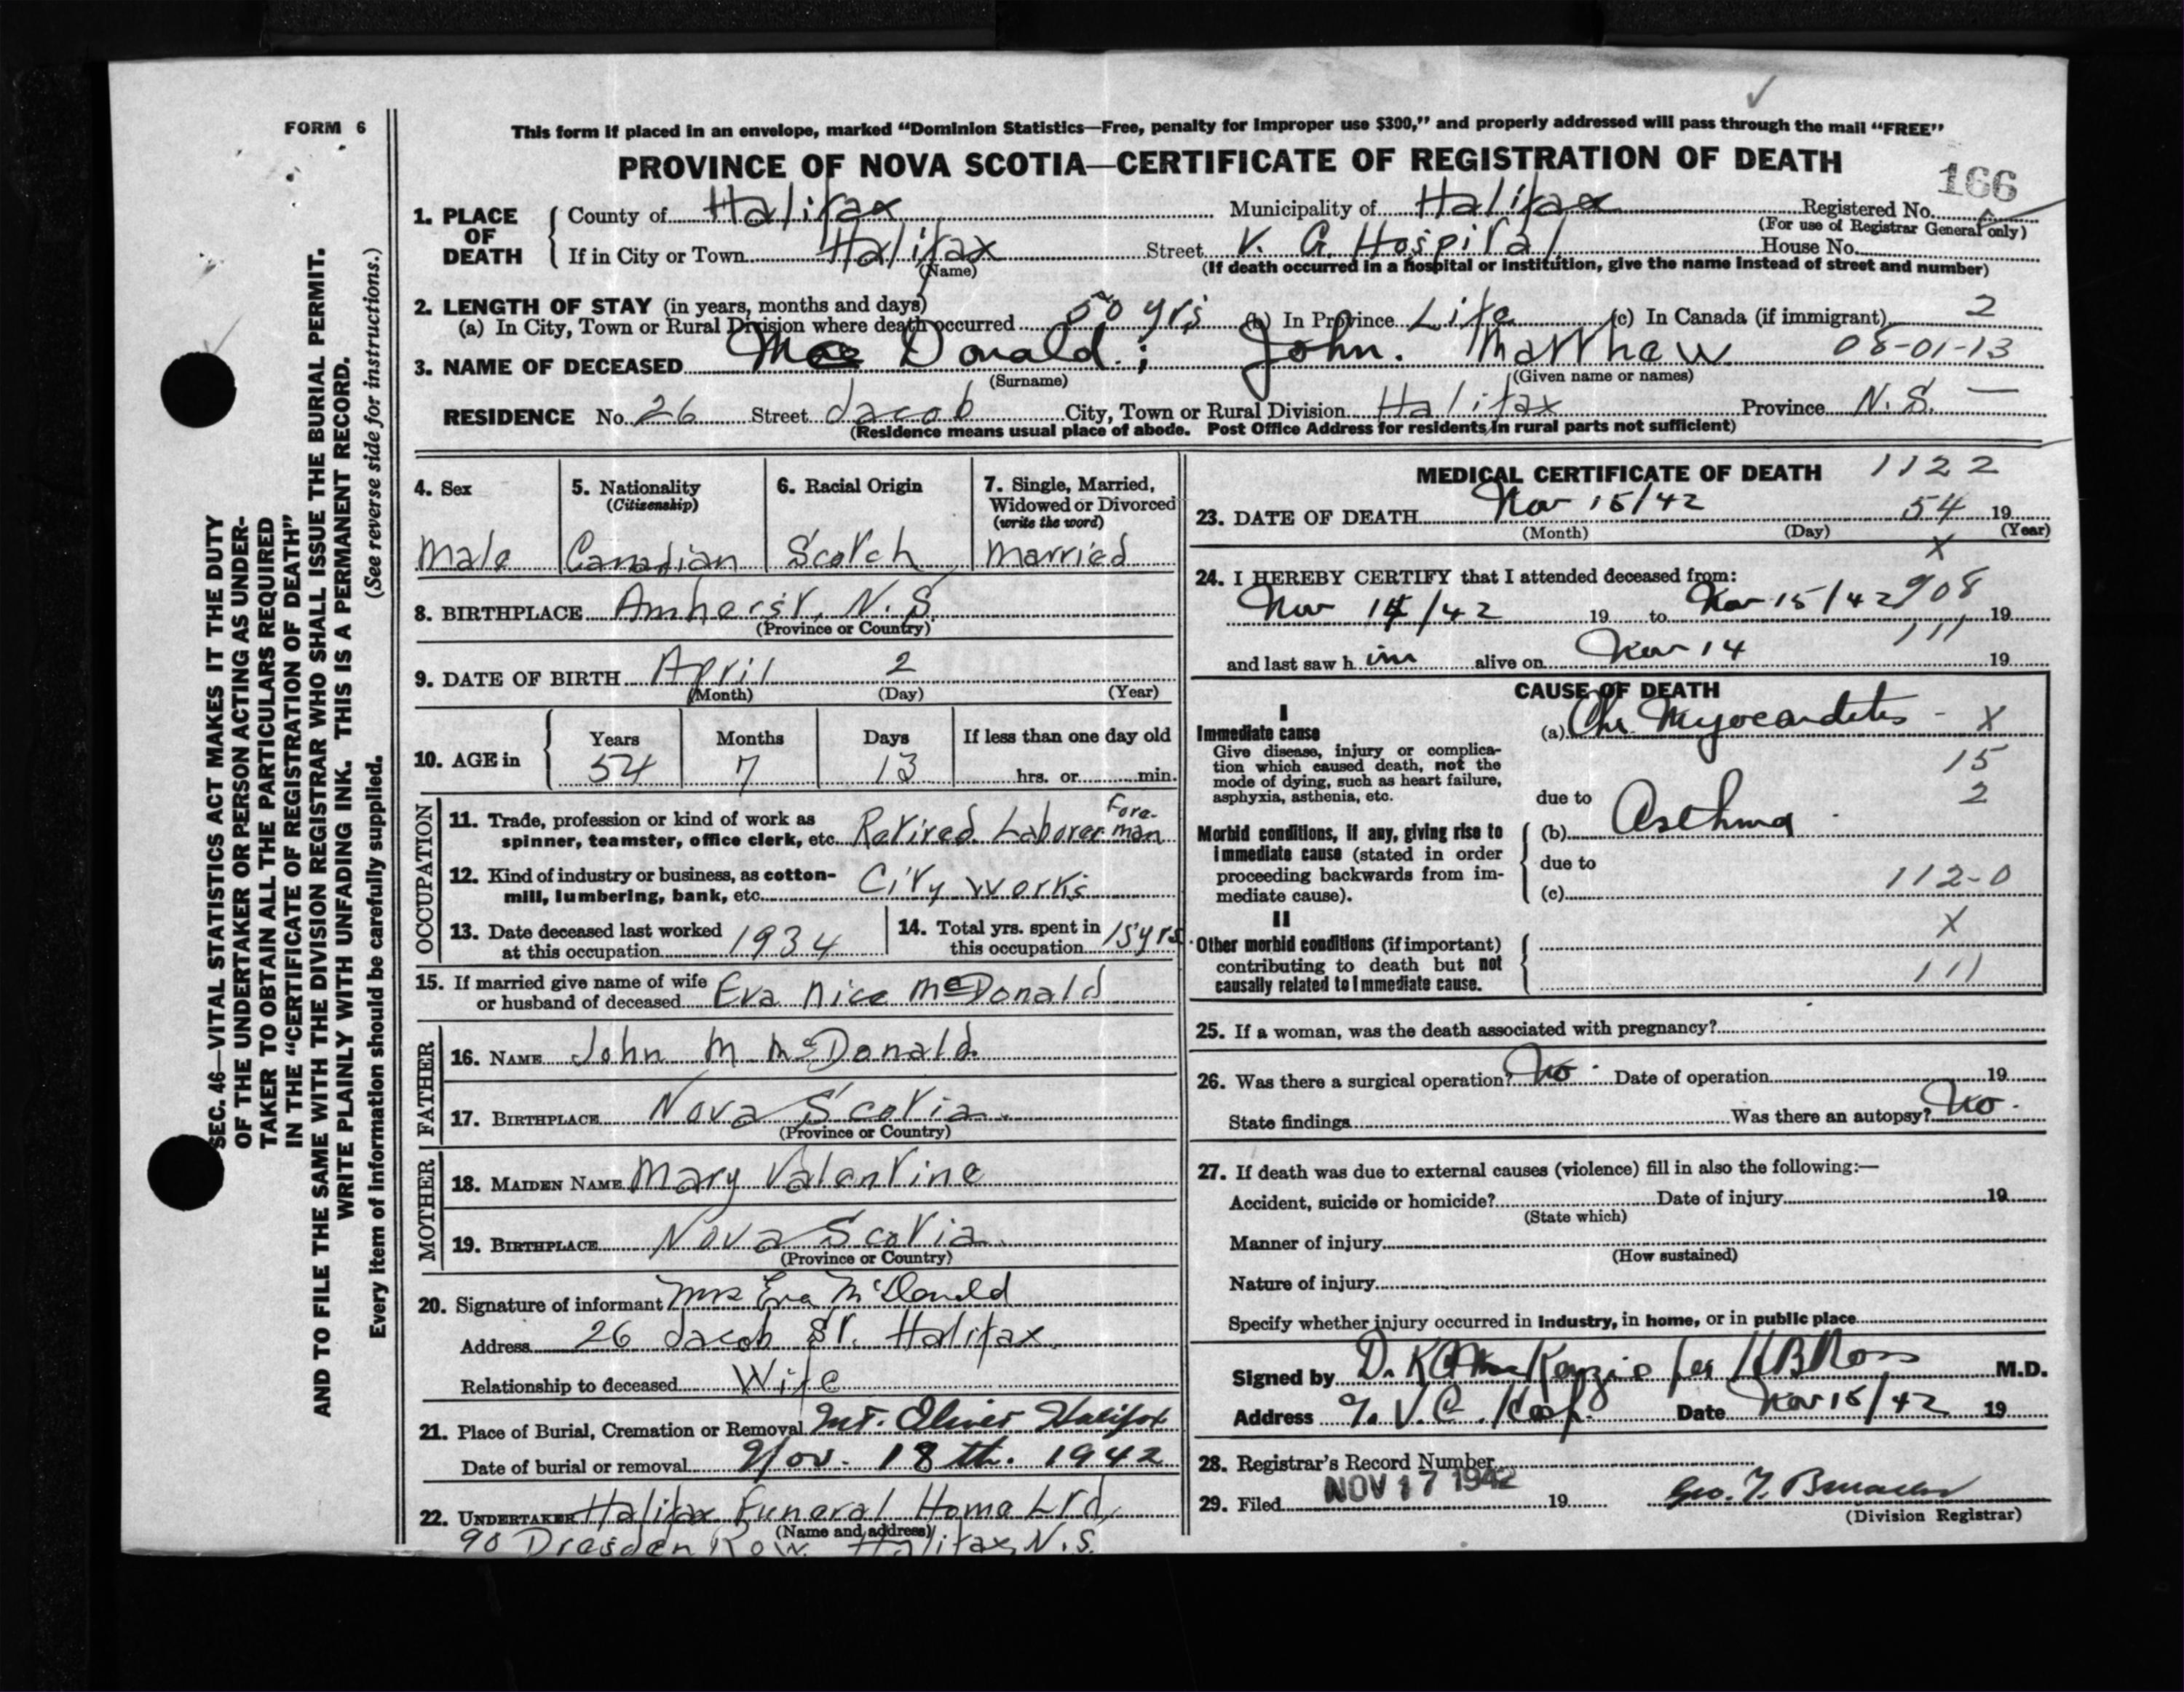 FORM 6
This form if placed in an envelope, marked “Dominion Statistics—Free, penalty for improper use $300,” and properly addressed will pass through the mail “FREE”
PROVINCE OF NOVA SCOTIA—CERTIFICATE OF REGISTRATION OF DEATH
166
1. PLACE OF DEATH County of Halifax Municipality of Halifax Registered No.
(For use of Registrar General only)
If in City or Town Halifax Street V. G. Hospital House No.
(Name) (If death occurred in a hospital or institution, give the name instead of street and number)
2. LENGTH OF STAY (in years, months and days)
(a) In City, Town or Rural Division where death occurred 50 yrs (b) In Province Life (c) In Canada (if immigrant) 2
3. NAME OF DECEASED Mac Donald; John. Matthew 08-01-13
(Surname) (Given name or names)
RESIDENCE No. 26 Street Jacob City, Town or Rural Division Halifax Province N.S. —
(Residence means usual place of abode. Post Office Address for residents in rural parts not sufficient)
4. Sex 5. Nationality (Citizenship) 6. Racial Origin 7. Single, Married, Widowed or Divorced (write the word)
Male Canadian Scotch Married
8. BIRTHPLACE Amherst, N.S.
(Province or Country)
9. DATE OF BIRTH April 2
(Month) (Day) (Year)
10. AGE in Years Months Days If less than one day old
54 7 13 hrs. or min.
OCCUPATION
11. Trade, profession or kind of work as spinner, teamster, office clerk, etc. Retired Laborer Fore-man
12. Kind of industry or business, as cotton-mill, lumbering, bank, etc. City Works
13. Date deceased last worked at this occupation 1934 14. Total yrs. spent in this occupation 15 yrs
15. If married give name of wife or husband of deceased Eva Nice McDonald
FATHER
16. NAME John M McDonald
17. BIRTHPLACE Nova Scotia
(Province or Country)
MOTHER
18. MAIDEN NAME Mary Valentine
19. BIRTHPLACE Nova Scotia
(Province or Country)
20. Signature of informant Mrs Eva McDonald
Address 26 Jacob St. Halifax
Relationship to deceased Wife
21. Place of Burial, Cremation or Removal Mt. Olivet Halifax
Date of burial or removal Nov. 18th. 1942
22. UNDERTAKER Halifax Funeral Home Ltd,
(Name and address)
90 Dresden Row. Halifax, N.S.
MEDICAL CERTIFICATE OF DEATH 1122
23. DATE OF DEATH Nov 15/42 54 19
(Month) (Day) (Year)
X
24. I HEREBY CERTIFY that I attended deceased from:
Nov 14/42 19 to Nov 15/42 908 19
111
and last saw h im alive on Nov 14 19
CAUSE OF DEATH
I
Immediate cause
Give disease, injury or complication which caused death, not the mode of dying, such as heart failure, asphyxia, asthenia, etc.
(a) Chr Myocarditis - X
15
due to 2
Morbid conditions, if any, giving rise to immediate cause (stated in order proceeding backwards from immediate cause).
(b) Asthma
due to
(c) 112-0
II X
Other morbid conditions (if important) contributing to death but not causally related to immediate cause.
111
25. If a woman, was the death associated with pregnancy?
26. Was there a surgical operation? No Date of operation 19
State findings Was there an autopsy? No.
27. If death was due to external causes (violence) fill in also the following:—
Accident, suicide or homicide? Date of injury 19
(State which)
Manner of injury
(How sustained)
Nature of injury
Specify whether injury occurred in industry, in home, or in public place
Signed by D. K. MacKenzie per HB Ross M.D.
Address V. G. Hosp. Date Nov 15/42 19
28. Registrar's Record Number
29. Filed NOV 17 1942 19
(Division Registrar)
SEC. 46—VITAL STATISTICS ACT MAKES IT THE DUTY
OF THE UNDERTAKER OR PERSON ACTING AS UNDER-
TAKER TO OBTAIN ALL THE PARTICULARS REQUIRED
IN THE “CERTIFICATE OF REGISTRATION OF DEATH”
AND TO FILE THE SAME WITH THE DIVISION REGISTRAR WHO SHALL ISSUE THE BURIAL PERMIT.
WRITE PLAINLY WITH UNFADING INK. THIS IS A PERMANENT RECORD.
Every item of information should be carefully supplied. (See reverse side for instructions.)